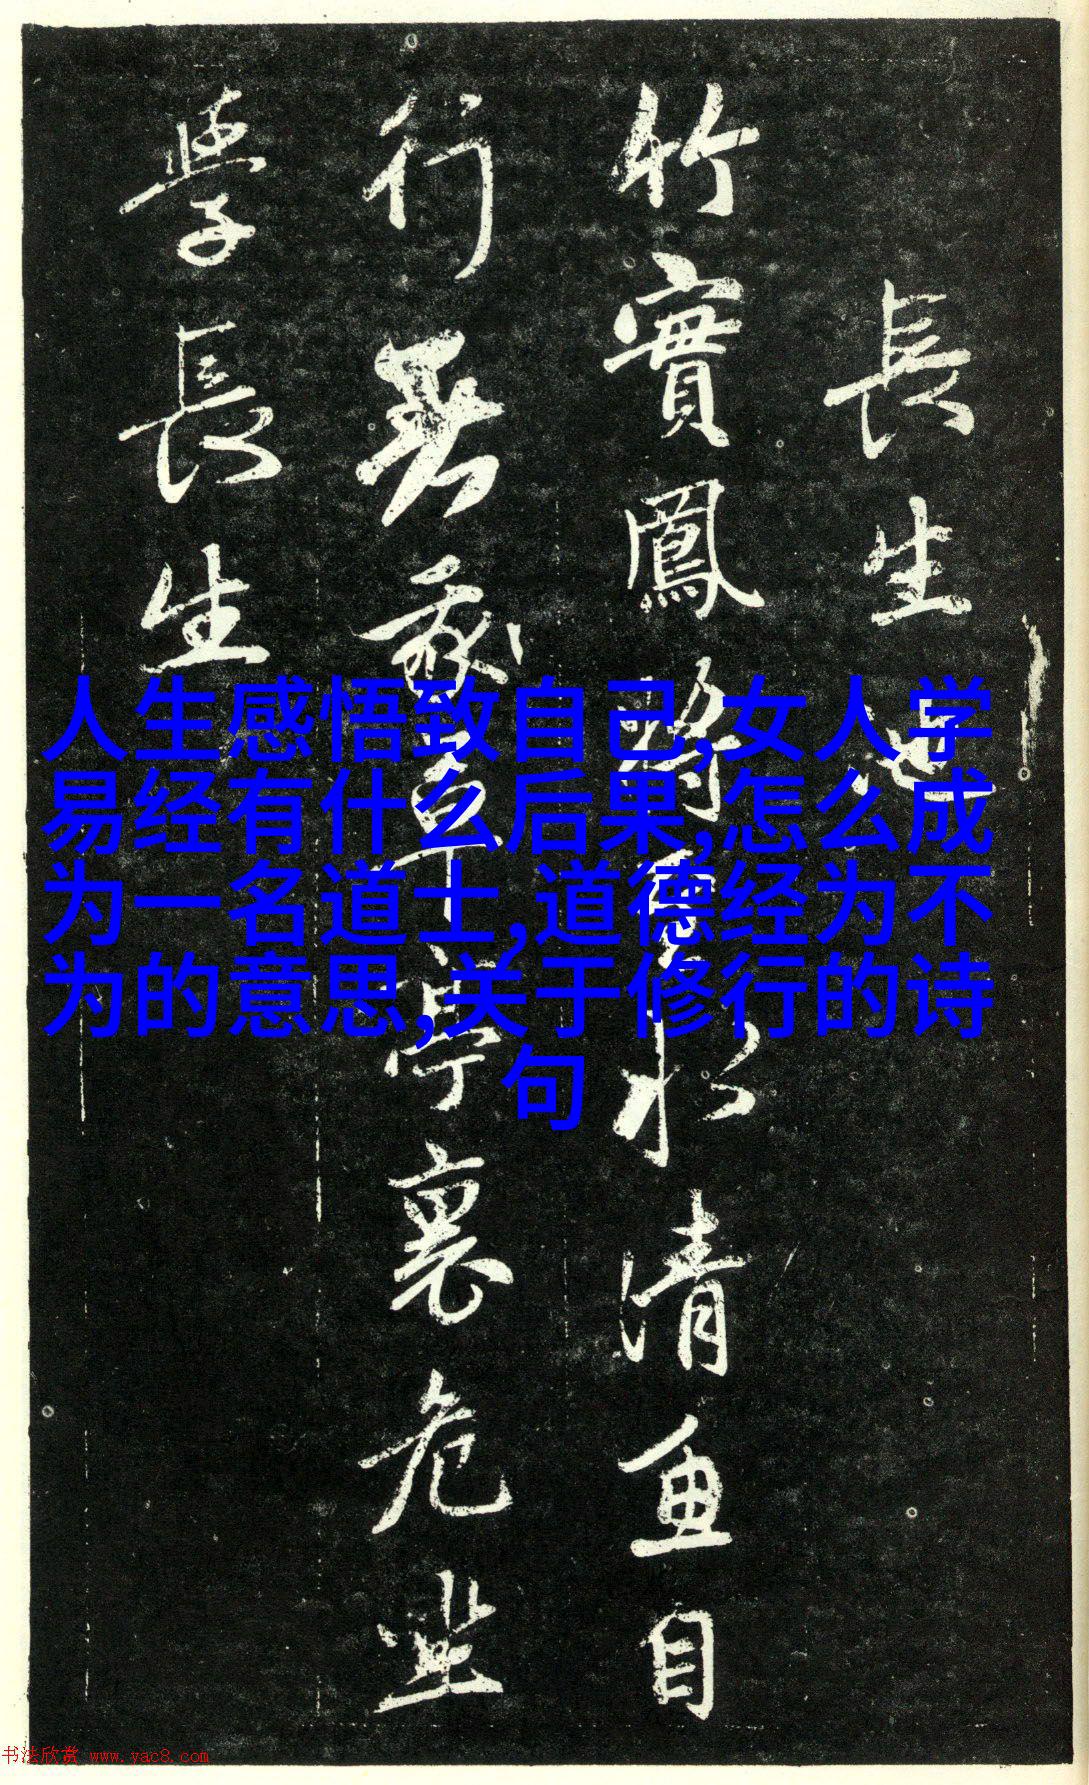 長生池
竹實鳳將至水清魚自
行無草亭裏危坐
學長生
人生感悟致自己,女人学
易经有什么后果,怎么成
为一名道士,道德经为不
为的意思,关于修行的诗
句
书法欣赏 www.yac8.com